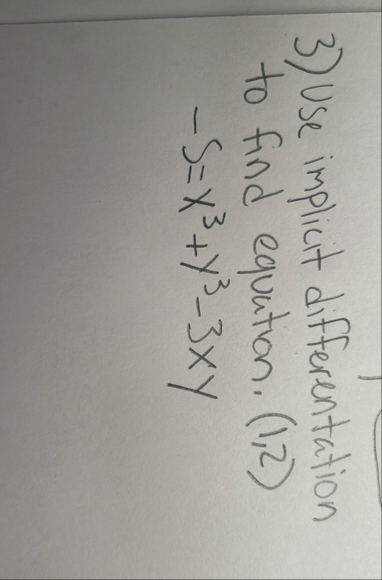 3) Use implicit differentation
to find equation. (1,2)
-5=x³+y³-3xy